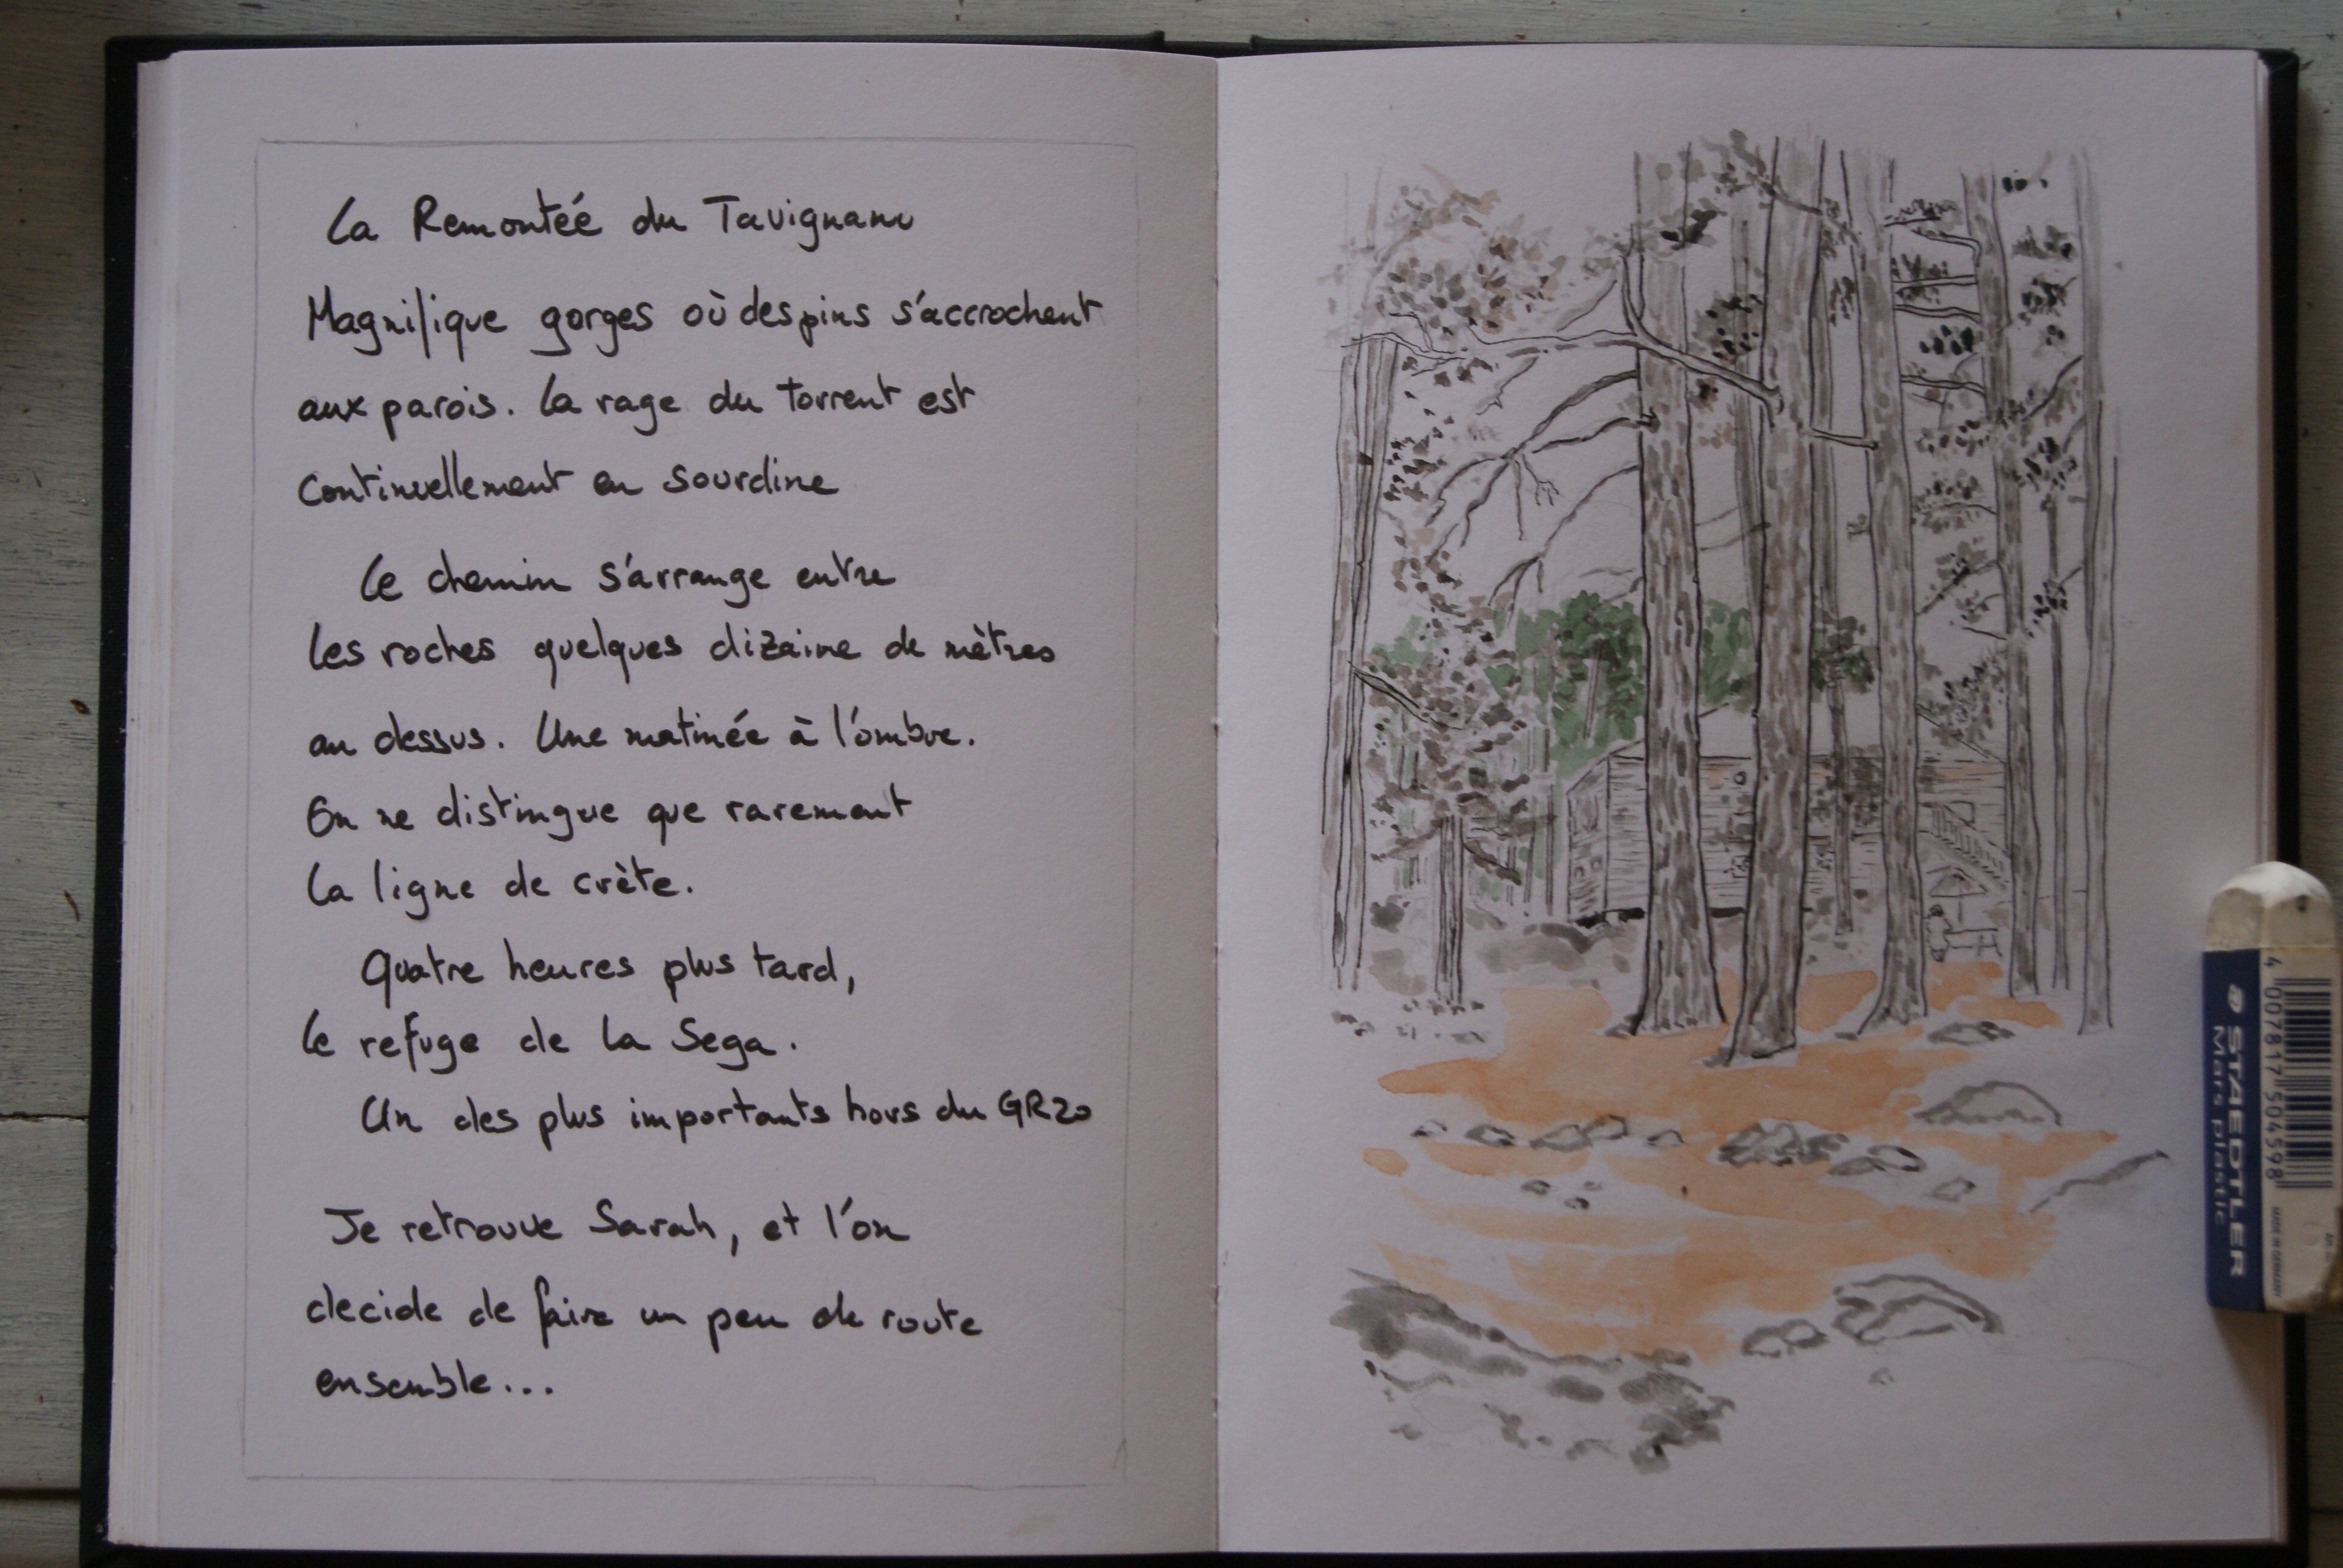 La Remontéé du Tavignanu
Magnifique gorges où des pins s'accrochent
aux parois. La rage du torrent est
continuellement en sourdine
Le chemin s'arrange entre
les roches quelques dizaine de mètres
au dessus. Une matinée à l'ombre.
On ne distingue que rarement
la ligne de crète.
Quatre heures plus tard,
le refuge de la Sega.
Un des plus importants hors du GR20
Je retrouve Sarah, et l'on
decide de faire un peu de route
ensemble...
STAEDTLER
Mars plastic
4 007817 504598
MADE IN GERMANY